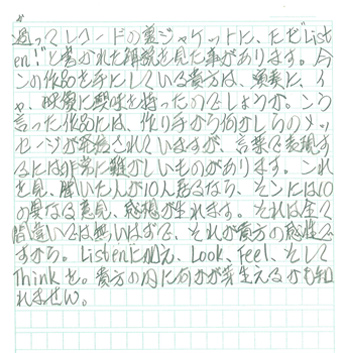 過ってレコードの裏ジャケットに、ただ"List
en!"と書かれた解説を見た事があります。今
この作品を手にしている貴方は、演奏に、イ
や、映像に興味を持ったのでしょうか。こう
言った作品には、作り手から何かしらのメッ
セージが発信されていますが、言葉で表現す
るには非常に難かしいものがあります。これ
を見、聞いた人が10人居るなら、そこには10
の異なる意見、感想が生れます。それは全て
間違いでは無いはずで、それが貴方の感性で
すから。Listenに加え、Look、Feel、そして
Thinkを。貴方の内に何かが芽生えるかも知
れません。